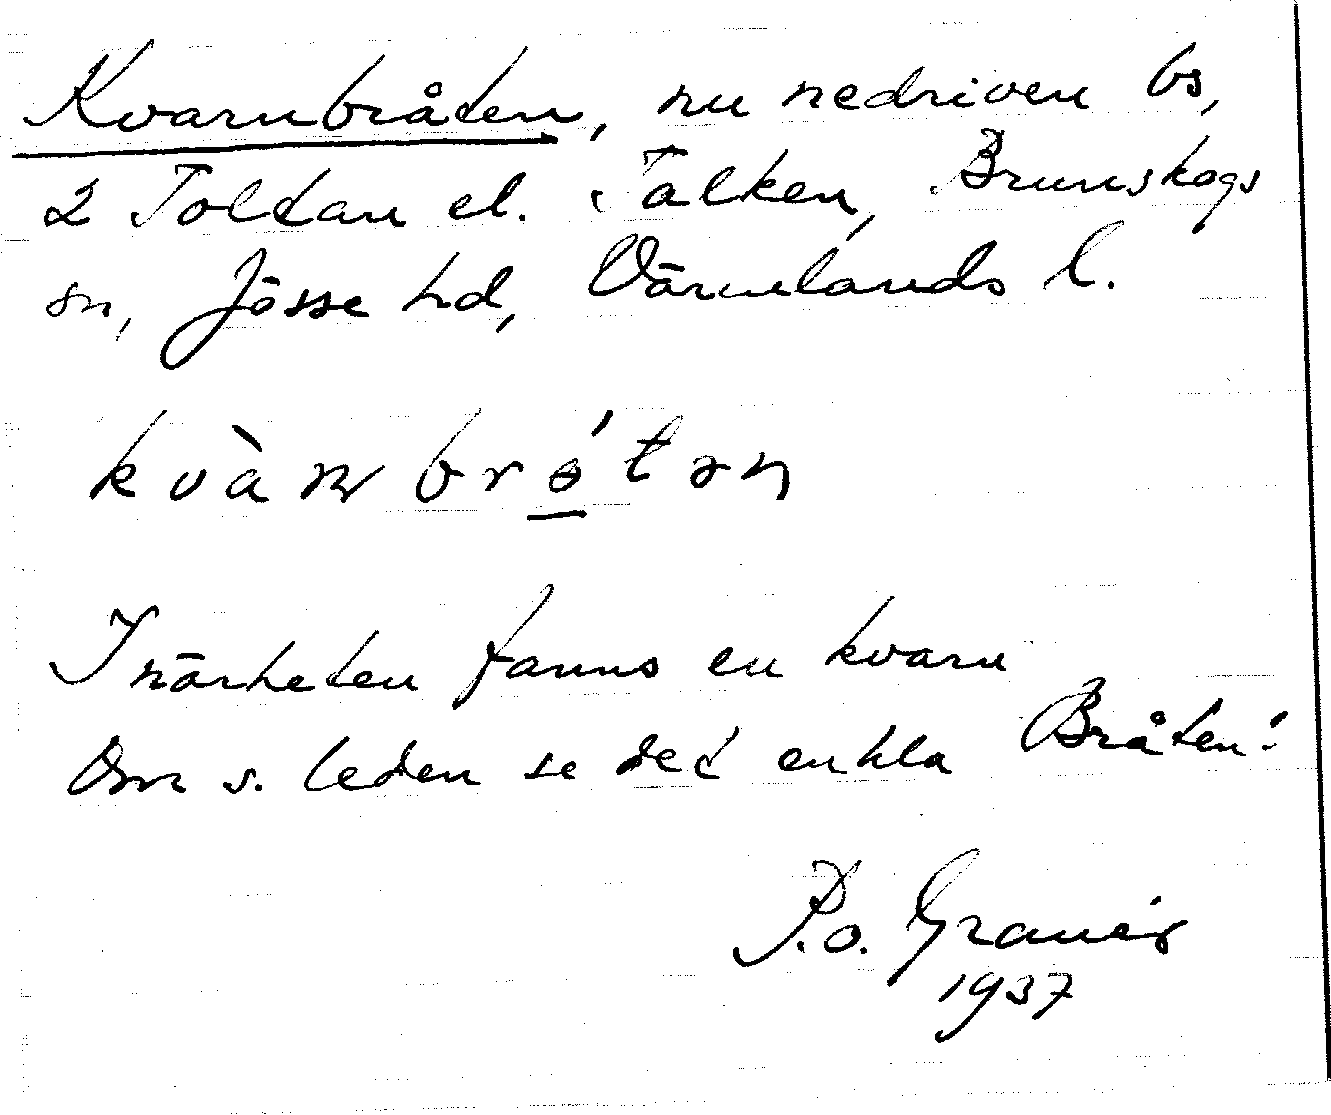 Kvarnbråten, nu nedriven bs,
2 Toltan el. Talken, Brunskogs
sn, Jösse hd, Värmlands l.
I närheten fanns en kvarn
Om s. leden se det enkla Bråten!
P.o. Graner
1937